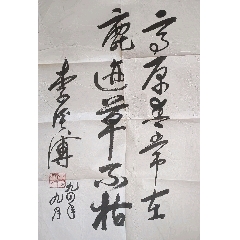 高原春常在
鹿草不枯
李溪溥
年九月